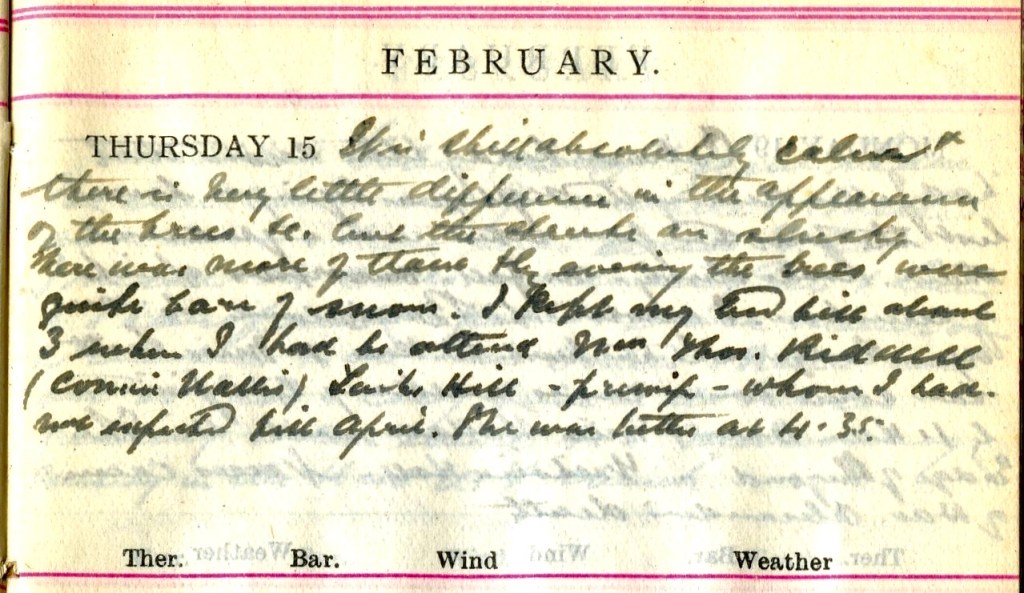 FEBRUARY.
THURSDAY 15 It is still absolutely calm &
there is very little difference in the appearance
of the trees &c. but the streets are slushy
there was more of thaw & by evening the trees were
quite bare of snow. I kept my bed till about
3 when I had to attend Mrs Thos. Riddell
(Connie Wallis) Hill - primip - whom I had
not expected till April. She was better at 4.35.
Ther. Bar. Wind Weather